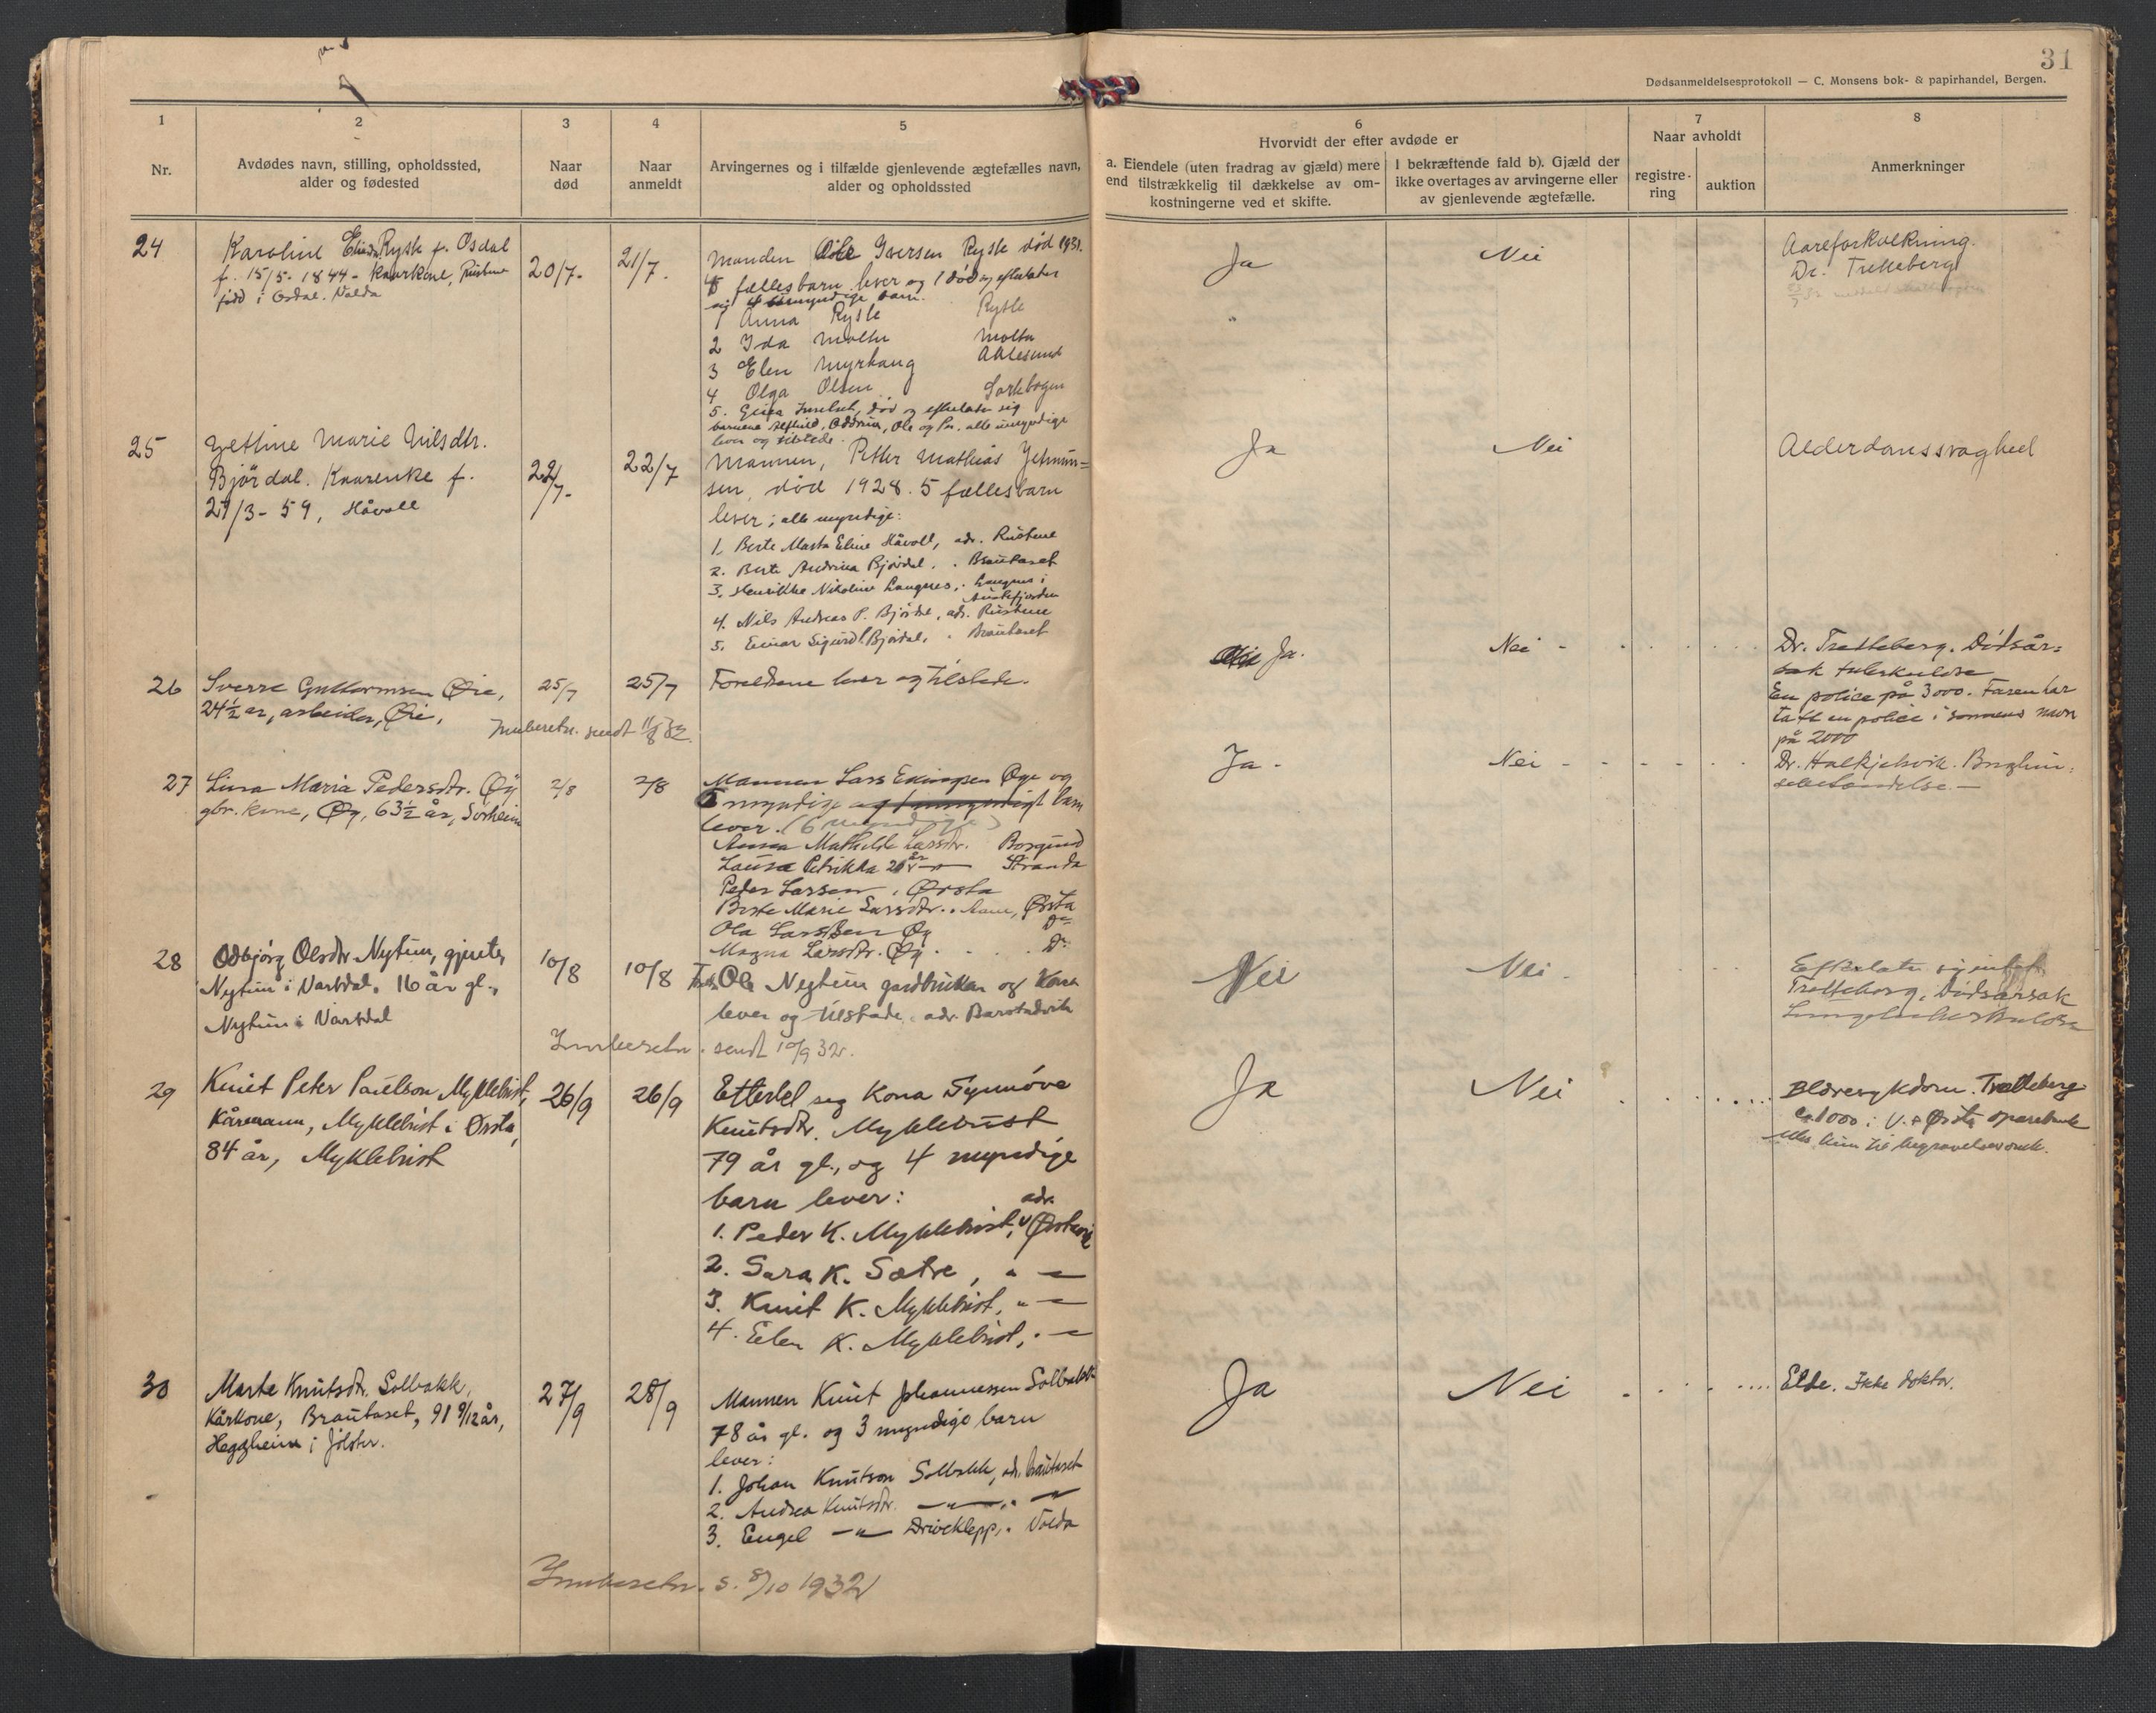 31
Dødsanmeldelsesprotokoll — C. Monsens bok- & papirhandel, Bergen.
1
Nr.
2
Avdødes navn, stilling, opholdssted,
alder og fødested
3
Naar
død
4
Naar
anmeldt
5
Arvingernes og i tilfælde gjenlevende ægtefælles navn,
alder og opholdssted
6
Hvorvidt der efter avdøde er
a. Eiendele (uten fradrag av gjæld) mere
end tilstrækkelig til dækkelse av om-
kostningerne ved et skifte.
I bekræftende fald b). Gjæld der
ikke overtages av arvingerne eller
av gjenlevende ægtefælle.
7
Naar avholdt
registre-
ring
auktion
8
Anmerkninger
24
Karoline Rysle f. Osdal
f. 15/5. 1844 - Kaarkone,
født i Osdal. Volda
20/7-
21/7.
Manden Ole Iversen Rysle død 1931.
fællesbarn lever og 1 død og efterlater
sig 4 umyndige barn.
1 Anna Rysle Rysle
2 Ida Moltu Moltu
3 Elen Myrhaug Aalesund
4 Olga Olsen
5. død og efterlater sig
barnene Oddrun, Ole og alle umyndige
lever og tilstede.
Ja
Nei
Aareforkalkning.
Dr. Tretteberg
25
Jettine Marie Nilsdtr.
Bjørdal. Kaarenke f.
27/3-59, Håvoll
22/7-
22/7
Mannen, Petter Mathias Jetmun=
sen, død 1928. 5 fællesbarn
lever; alle myndige:
1. Berte Marta Eline Håvoll, adr. Rustene
2. Berte Andrina Bjørdal. " Brautaset
3. Henrikke Nikoline Langnes, " Langnes i
Austefjorden
4. Nils Andreas P. Bjørdal, adr. Rustene
5. Einar Sigurd Bjørdal, " Brautaset
Ja
Nei
Alderdomssvaghed
26
Sverre Guttormsen Øie,
24½ år, arbeider, Øie,
25/7
25/7
Foreldrene lever og tilstede.
Innberetn. sendt 11/8 32.
Ja.
Nei -
Dr. Tretteberg. Dødsår=
sak tuberkulose
En police på 3000. Faren har
tatt en police i sønnens navn
på 2000
27
Lina Maria Pedersdtr. Øy
gbr. kone, Øy, 63½ år, Sørheim
2/8
2/8
Mannen Lars Øye og
6 myndige og 1 umyndigt barn
lever. (6 myndige)
Anna Mathilde Larsdtr. Borgund
Laura Petrikka 20 år —"— Stranda
Peder Larsen, Ørsta
Berte Marie Larsdtr. Aam, Ørsta
Ola Larssen Øy Do
Magna Larsdtr. Øy. Do
Ja -
Nei -
Dr. Halkjelsvik.
28
Odbjørg Olsdtr Nytun, gjente,
Nytun i Vartdal. 16 år gl.,
Nytun i Vartdal
10/8
10/8
Ola Nytun gardbruker og Kona
lever og tilstade. adr. Barstadvik
Innberetn. sendt 10/9 32.
Nei
Nei -
Efterlater sig intet
Tretteberg. Dødsårsak
Lungetuberkulose
29
Knut Peter Paulson Myklebust,
Kårmann, Myklebust i Ørsta,
84 år, Myklebust
26/9
26/9
Etterlet seg Kona Synnøve
Knutsdtr. Myklebust
79 år gl., og 4 myndige
barn lever:
1. Peder K. Myklebust, adr. Ørstavik
2. Sara K. Sætre, " —
3. Knut K. Myklebust, " —
4. Elen K. Myklebust, " —
Ja
Nei
Blæresykdom. Tretteberg
ca 1000 i V. & Ørsta sparebank
30
Marte Knutsdtr. Solbakk,
Kårkone, Brautaset, 91 9/12 år,
Heggheim i Jølster.
27/9
28/9
Mannen Knut Johannessen Solbakk
78 år gl. og 3 myndige barn
lever:
1. Johan Knutson Solbakk, adr. Brautaset
2. Andrea Knutsdtr. —"—, " —"—
3. Engel —"— Driveklepp, " Volda
Innberetn. s. 8/10 1932
Ja
Nei
Elde. Ikke doktor.